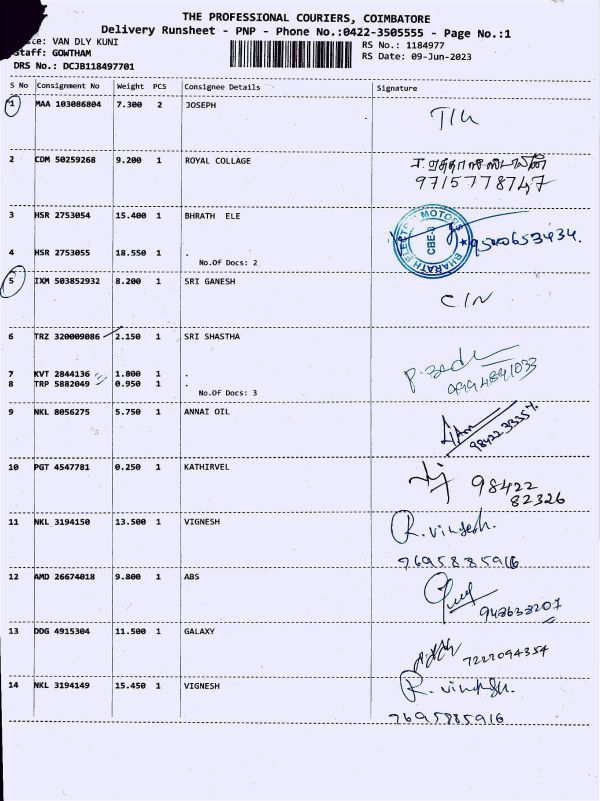 THE PROFESSIONAL COURIERS, COIMBATORE
Delivery Runsheet - PNP - Phone No.:0422-3505555 - Page No.:1
VAN DLY KUNI
RS No.: 1184977
Staff: GOWTHAM
RS Date: 09-Jun-2023
DRS No.: DCJB118497701
S No Consignment No Weight PCS Consignee Details Signature
1 MAA 103086804 7.300 2 JOSEPH
2 CDM 50259268 9.200 1 ROYAL COLLAGE
9715778747
3 HSR 2753054 15.400 1 BHRATH ELE
ELECTRO MOTORS BHARATH CBE-6
4 HSR 2753055 18.550 1 .
No.Of Docs: 2
5 IXM 503852932 8.200 1 SRI GANESH
C/N
6 TRZ 320009086 2.150 1 SRI SHASTHA
7 KVT 2844136 1.800 1 .
8 TRP 5882049 0.950 1 .
No.Of Docs: 3
9 NKL 8056275 5.750 1 ANNAI OIL
10 PGT 4547781 0.250 1 KATHIRVEL
98422
82326
11 NKL 3194150 13.500 1 VIGNESH
7695885916
12 AMD 26674018 9.800 1 ABS
13 DDG 4915304 11.500 1 GALAXY
7222094354
14 NKL 3194149 15.450 1 VIGNESH
7695885916